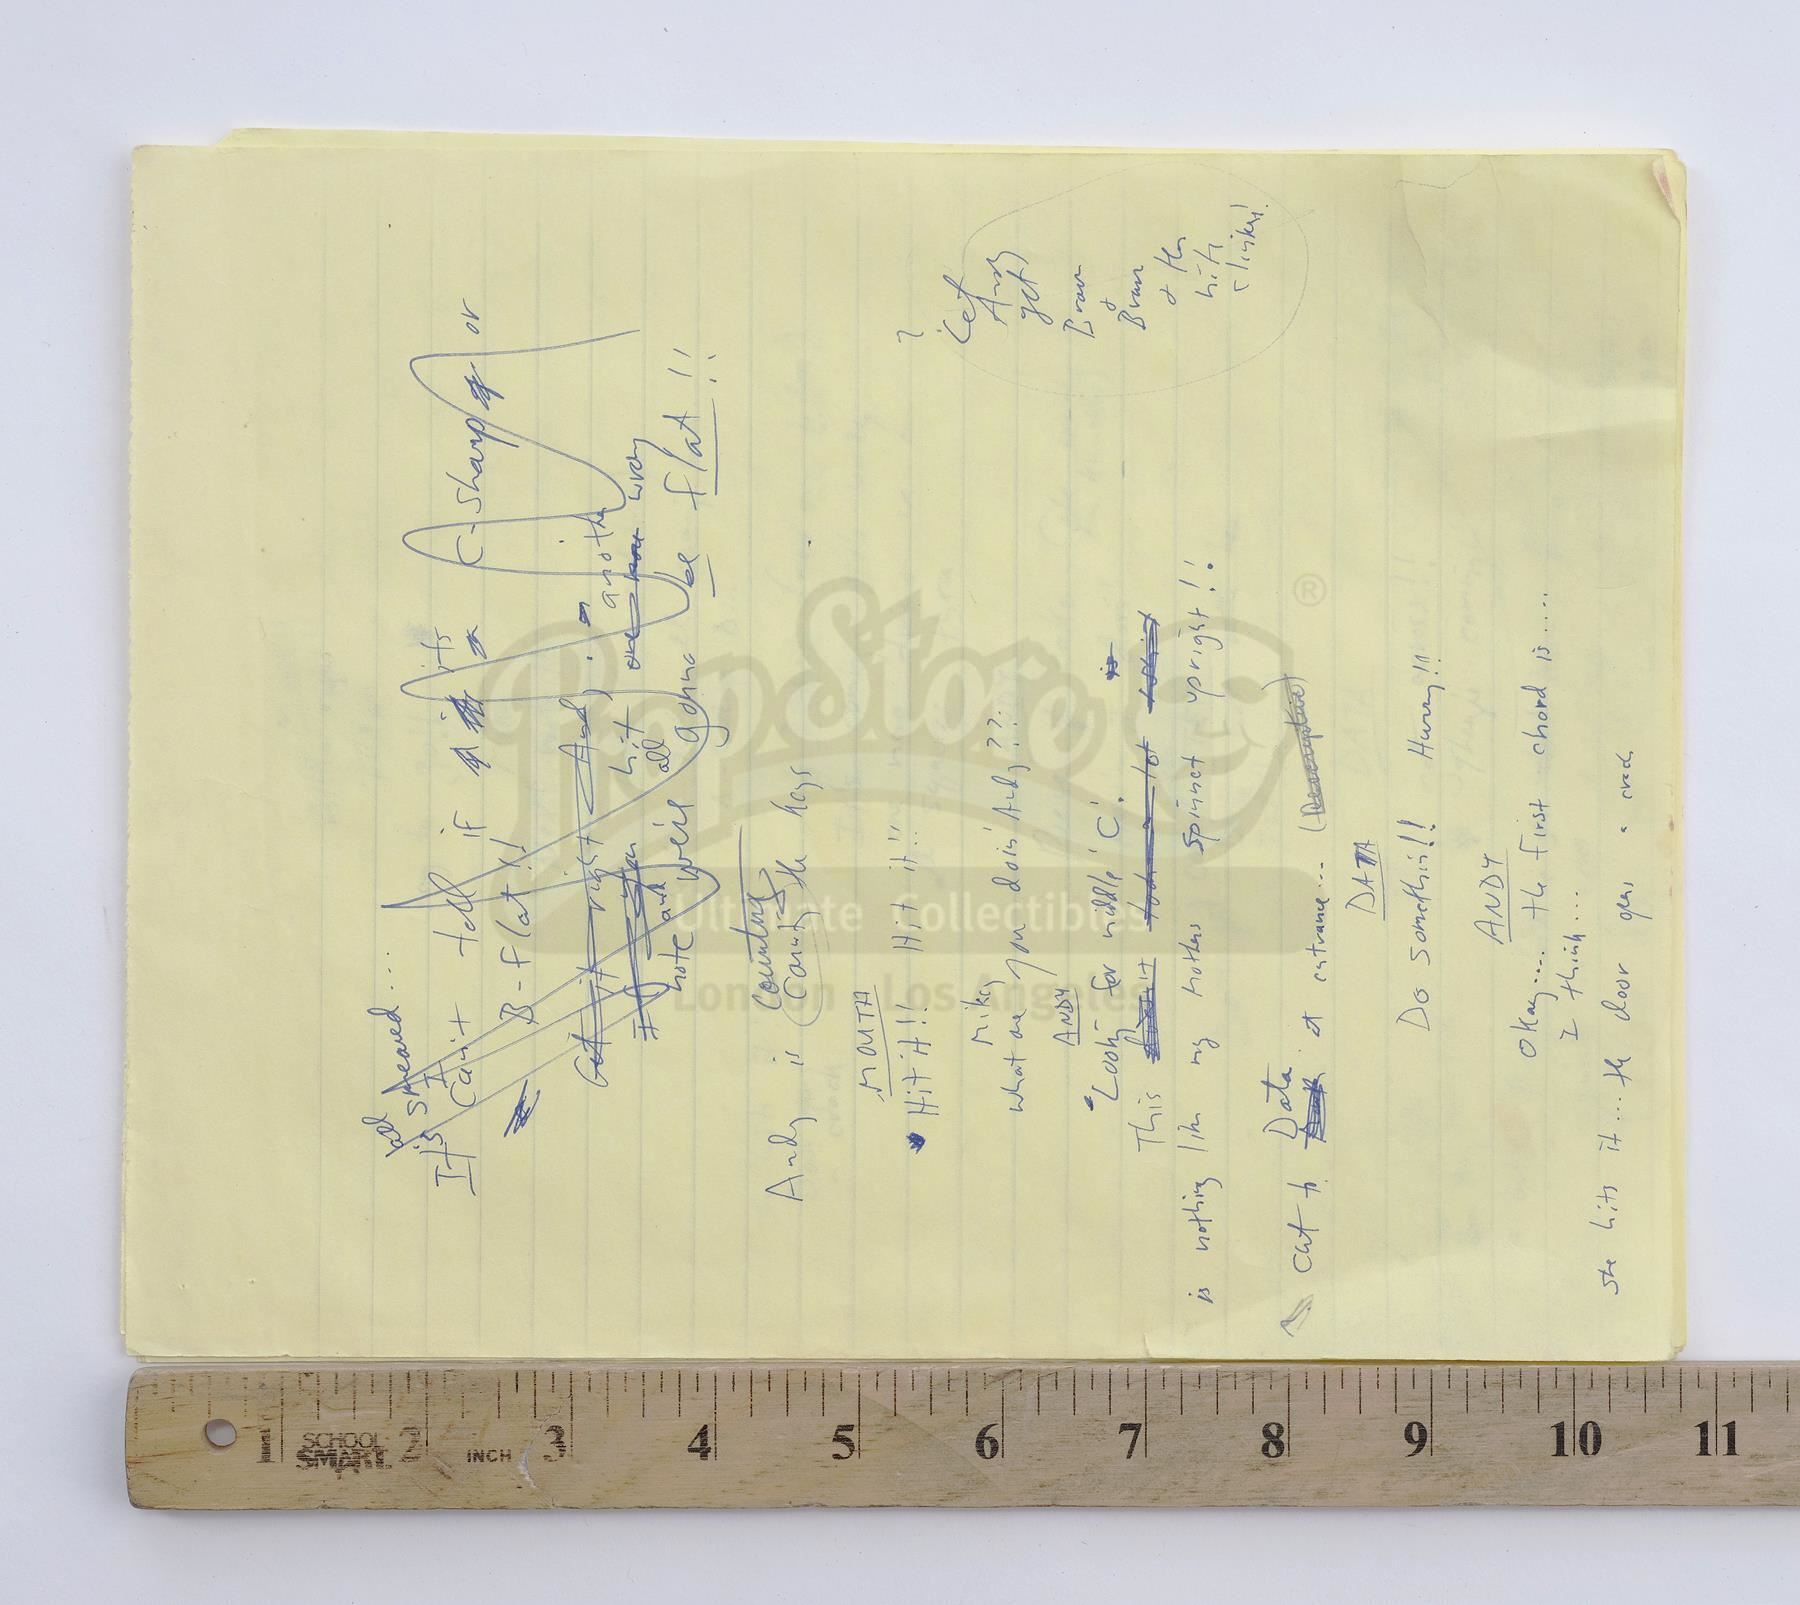 all smeared...
It's
I can't tell if its E-sharp or
B-flat!!
Get it right Andy,
another
If you hit one more wrong
and all
note we'll gonna be flat!!
Andy is counting the keys
MOUTH
Hit it!! Hit it!!
Mikey
What are you doin' Andy???
ANDY
Lookin for middle 'C'.
This
is nothing like my mothers spinnet upright!!
Cut to Data at entrance...
DATA
Do somethin!! Hurry!!
ANDY
Okay.... the first chord is....
I think...
She hits it.... the door opens a crack
?
Let
Andy
get
&
& then
hits
clinker!
PropStore
®
Ultimate Collectibles
London Los Angeles
SCHOOL
SMART
INCH
1 2 3 4 5 6 7 8 9 10 11